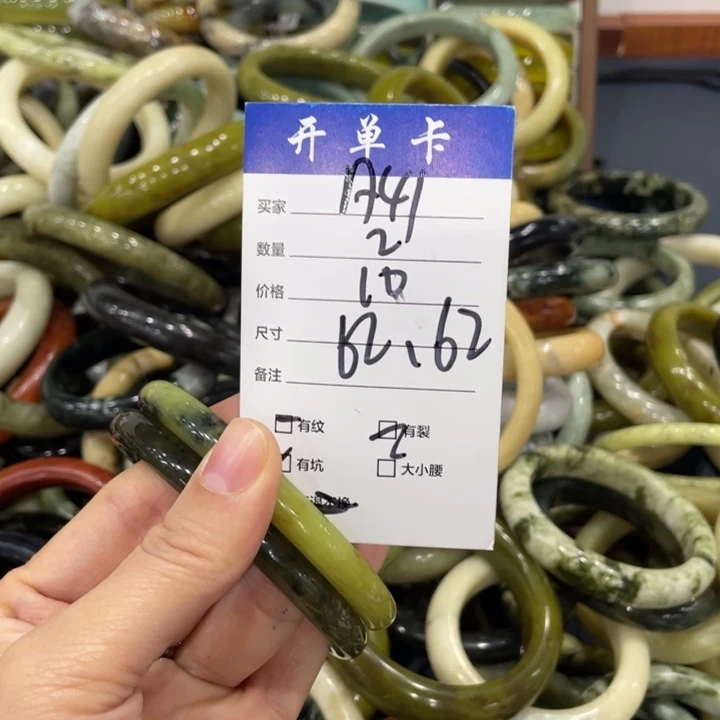 开单卡
买家 1741
数量 2
价格 10
尺寸 62、62
备注
有纹 有裂
有坑 大小腰